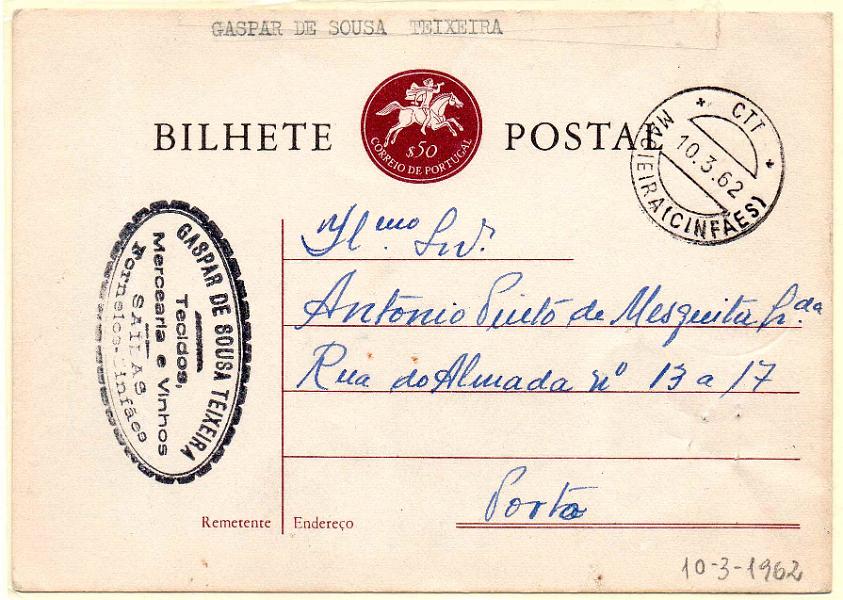 GASPAR DE SOUSA TEIXEIRA
BILHETE POSTAL
$50
CORREIO DE PORTUGAL
CTT
10.3.62
(CINFÃES)
GASPAR DE SOUSA TEIXEIRA
Tecidos,
Mercearia e Vinhos
SAILAS
Fornelos-Cinfães
Il.mo Snr.
António Pinto de Mesquita L.da
Rua do Almada nº 13 a 17
Porto
Remetente
Endereço
10-3-1962